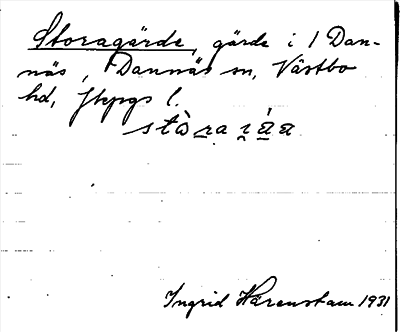 Storagärde, gärde i 1 Dan-
näs, Dannäs sn, Västbo
hd, Jkpgs l.
stòra
Ingrid Härenstam 1931